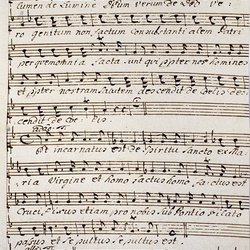 lumen de Lumine Deum verum de Deo ve:
ro genitum non factum Consubstantialem Patri
per quem omnia facta sunt qui propter nos homines
et propter nostram salutem descendit de Coelis des:
cendit de Coe: lis.
et incarnatus est de Spiritu Sancto ex Ma
ria Virgine et homo factus homo factus est
Cruci fixus etiam pro nobis sub Pontio pilato
passus et sepultus sepultus est.